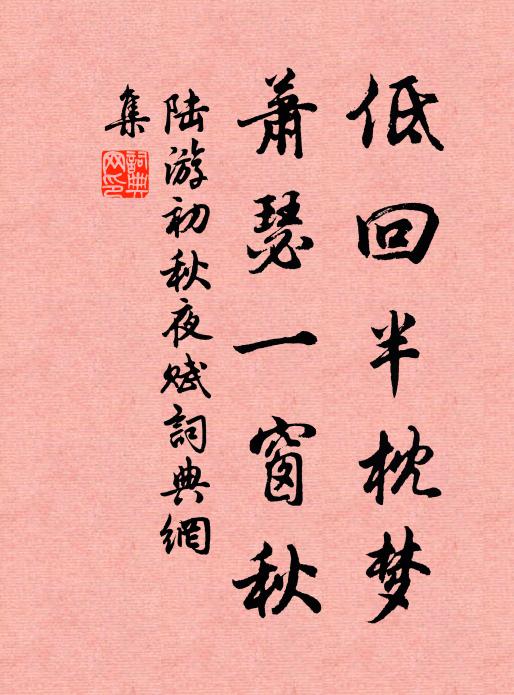 低回半枕梦
萧瑟一窗秋
陆游初秋夜赋詞典網
集
詞典
网印